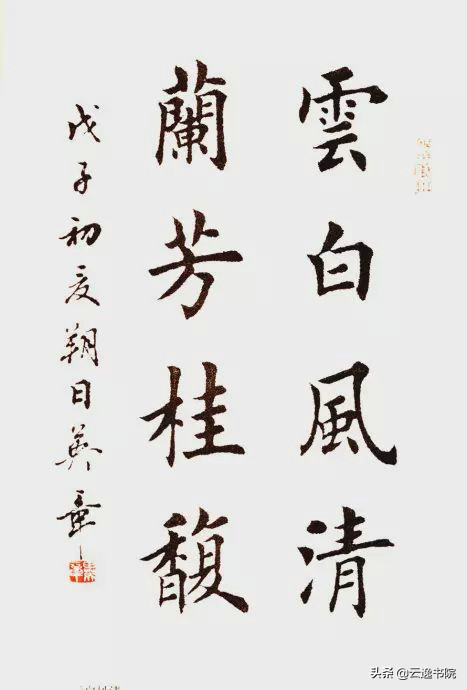 雲白風清
蘭芳桂馥
戊子初夏朔日英章
头条@云逸书院